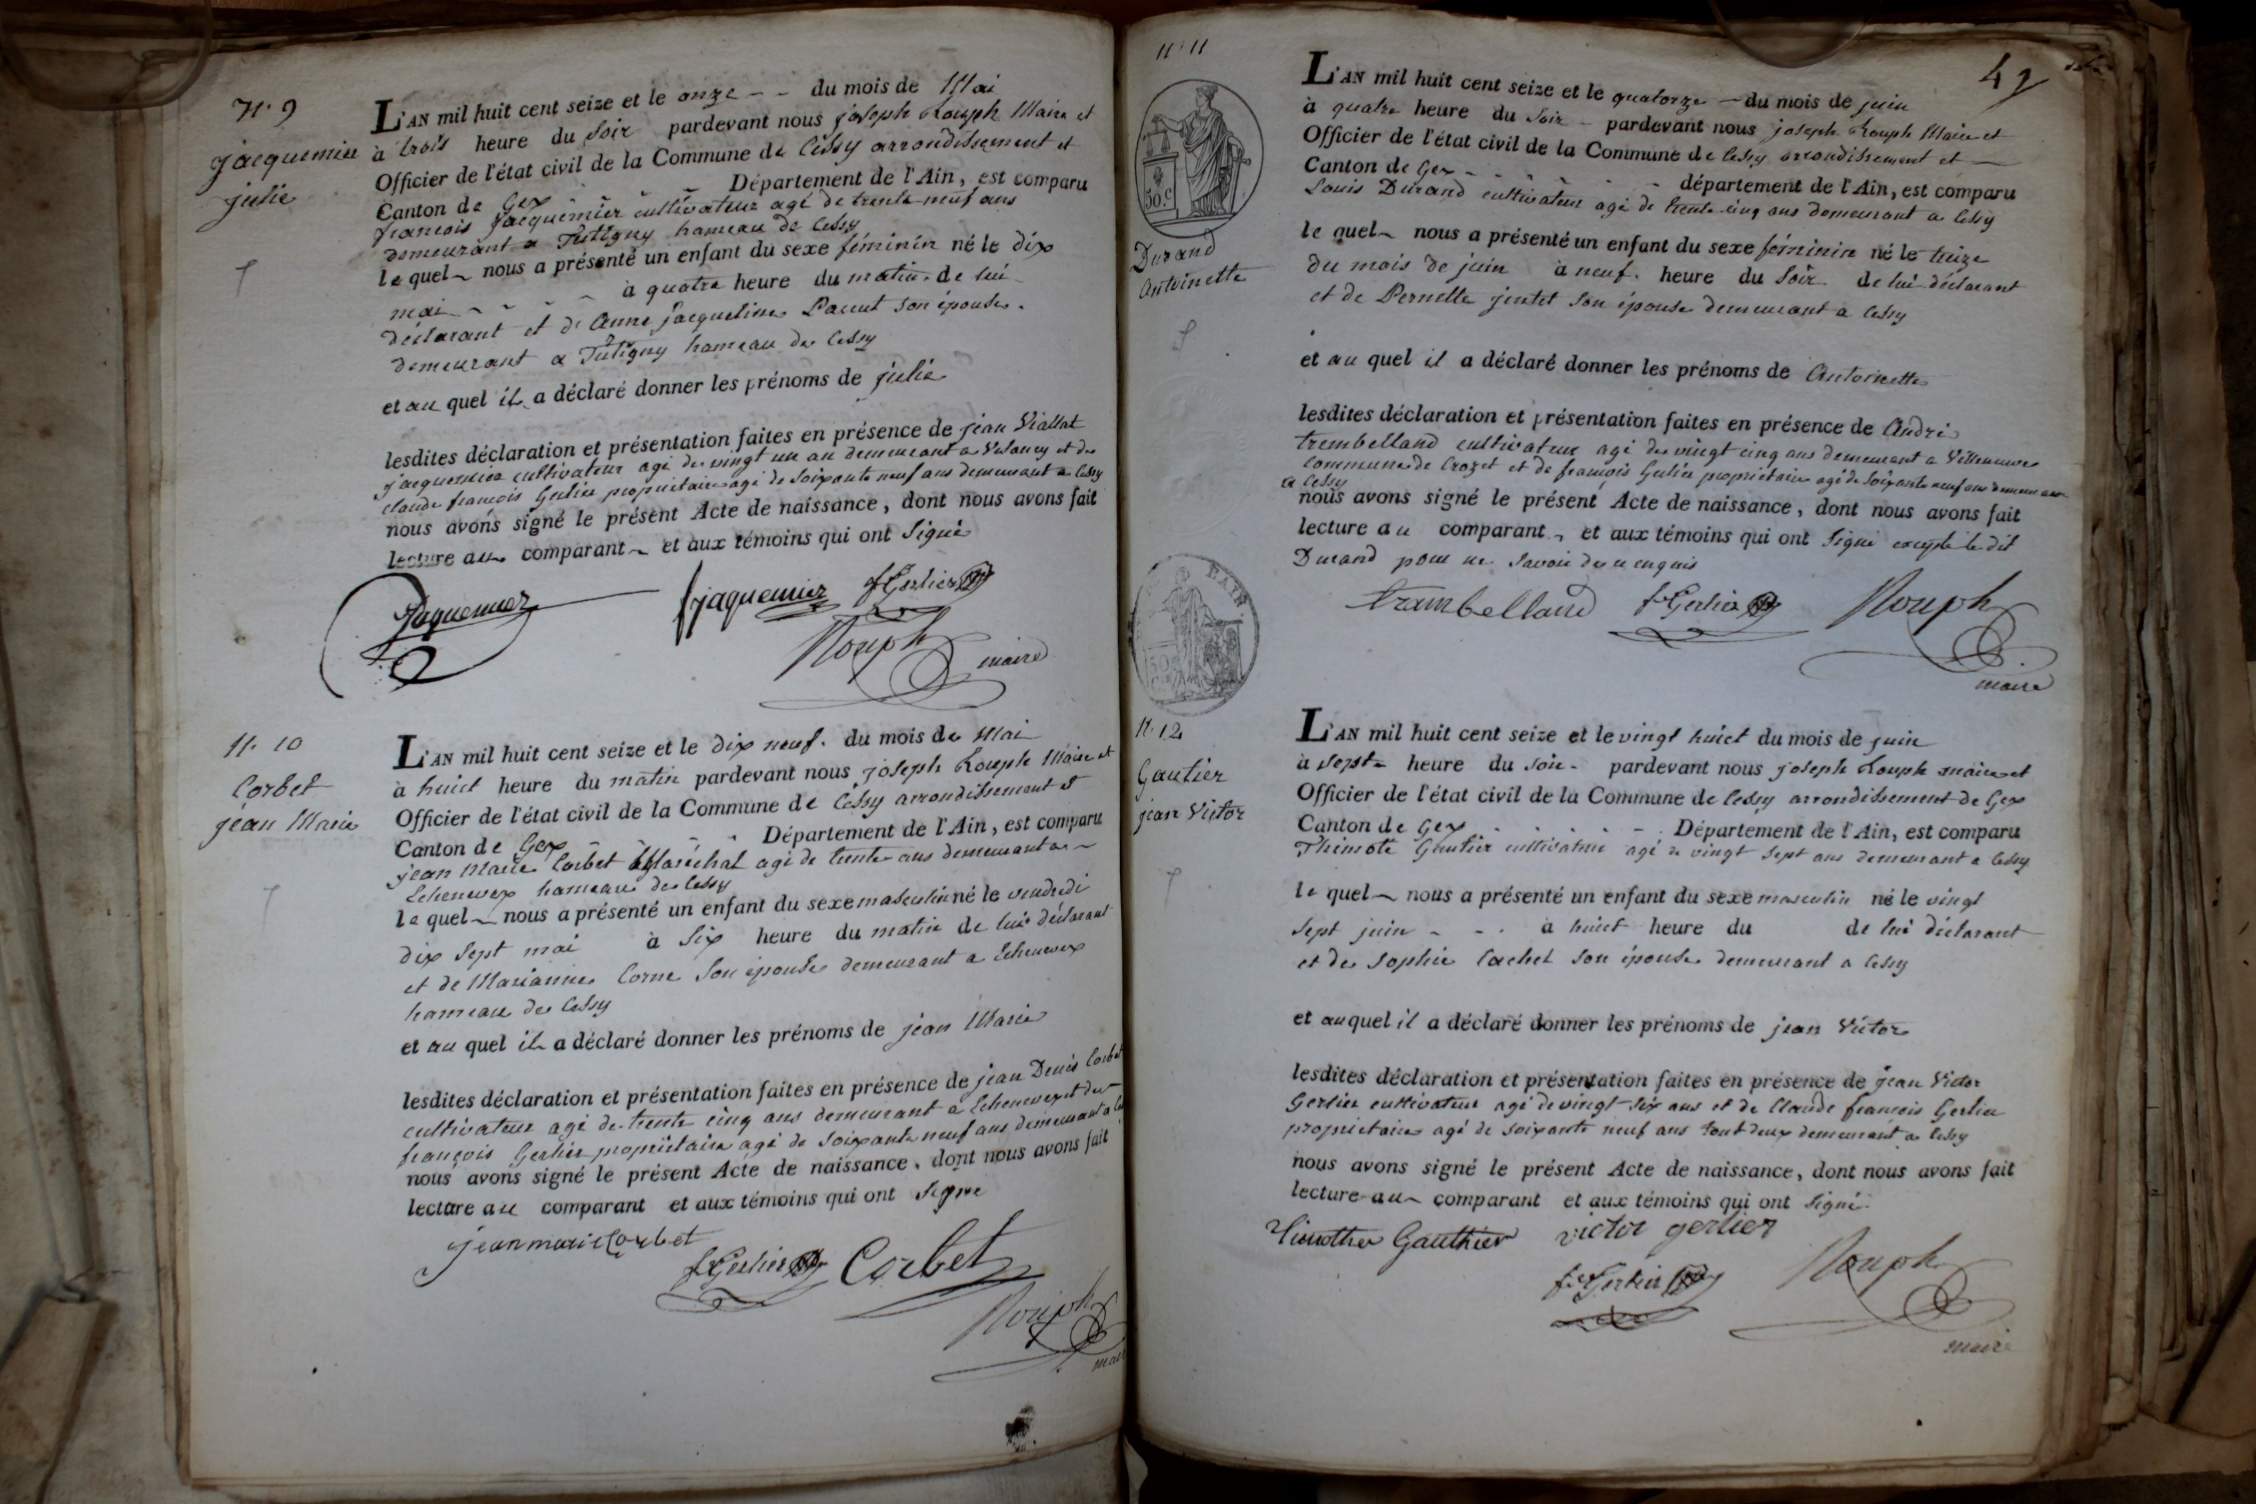 N. 9
jacquemier
julie
L'AN mil huit cent seize et le onze du mois de Mai
à trois heure du Soir pardevant nous joseph Rouph Maire et
Officier de l'état civil de la Commune de Cessy arrondissement et
Canton de Gex Département de l'Ain, est comparu
francois jacquemier cultivateur agé de trente neuf ans
demeurant a Tutigny hameau de Cessy
le quel nous a présenté un enfant du sexe féminin né le dix
mai à quatre heure du matin de lui
déclarant et d'Anne jacqueline son épouse
demeurant a Tutigny hameau de Cessy
et au quel il a déclaré donner les prénoms de julie
lesdites déclaration et présentation faites en présence de jean Viallat
jacquemier cultivateur agé de vingt un an demeurant a et de
claude francois Gerlier propriétaire agé de soixante neuf ans demeurant a Cessy
nous avons signé le présent Acte de naissance, dont nous avons fait
lecture au comparant et aux témoins qui ont Signé
Jaquemier fjaquemier f Gerlier
Rouph
maire
N. 10
Corbet
jean Marie
L'AN mil huit cent seize et le dix neuf du mois de Mai
à huict heure du matin pardevant nous joseph Rouph Maire et
Officier de l'état civil de la Commune de Cessy arrondissement et
Canton de Gex Département de l'Ain, est comparu
jean Marie Corbet Maréchal agé de trente ans demeurant a
Echenevex hameau de Cessy
le quel nous a présenté un enfant du sexe masculin né le vendredi
dix sept mai à six heure du matin de lui déclarant
et de Marianne Corne son épouse demeurant a Echenevex
hameau de Cessy
et au quel il a déclaré donner les prénoms de jean Marie
lesdites déclaration et présentation faites en présence de jean Denis Corbet
cultivateur agé de trente cinq ans demeurant a Echenevex et de
françois Gerlier propriétaire agé de soixante neuf ans demeurant a
nous avons signé le présent Acte de naissance, dont nous avons fait
lecture au comparant et aux témoins qui ont signé
jean marie Corbet
f Gerlier Corbet
Rouph
maire
N. 11
42
50 C
Durand
Antoinette
L'AN mil huit cent seize et le quatorze du mois de juin
à quatre heure du soir pardevant nous joseph Rouph Maire et
Officier de l'état civil de la Commune de Cessy arrondissement et
Canton de Gex département de l'Ain, est comparu
Louis Durand cultivateur agé de trente cinq ans demeurant a Cessy
le quel nous a présenté un enfant du sexe féminin né le treize
du mois de juin à neuf heure du Soir de lui déclarant
et de Pernette jentet son épouse demeurant a Cessy
et au quel il a déclaré donner les prénoms de Antoinette
lesdites déclaration et présentation faites en présence de André
trembelland cultivateur agé de vingt cinq ans demeurant a Villeneuve
commune de Crozet et de françois Gerlier propriétaire agé de soixante neuf ans
a Cessy
nous avons signé le présent Acte de naissance, dont nous avons fait
lecture au comparant, et aux témoins qui ont signé excepté le dit
Durand pour ne savoir de ce enquis
trambelland f Gerlier Rouph
maire
N. 12
Gautier
jean Victor
L'AN mil huit cent seize et le vingt huict du mois de juin
à sept heure du soir pardevant nous joseph Rouph maire et
Officier de l'état civil de la Commune de Cessy arrondissement de Gex
Canton de Gex Département de l'Ain, est comparu
Thimoté Gautier cultivateur agé de vingt sept ans demeurant a Cessy
le quel nous a présenté un enfant du sexe masculin né le vingt
sept juin à huict heure du de lui déclarant
et de Sophie Cachet son épouse demeurant a Cessy
et auquel il a déclaré donner les prénoms de jean Victor
lesdites déclaration et présentation faites en présence de jean Victor
Gerlier cultivateur agé de vingt six ans et de Claude françois Gerlier
propriétaire agé de soixante neuf ans tout deux demeurant a Cessy
nous avons signé le présent Acte de naissance, dont nous avons fait
lecture au comparant et aux témoins qui ont signé
Timothee Gauthier victor gerlier
f Gerlier Rouph
maire